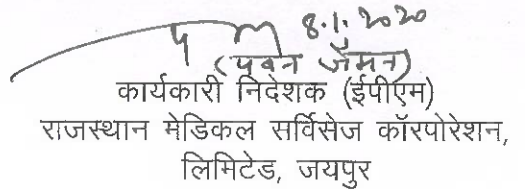 8.1.2020
(पवन जैमन)
कार्यकारी निदेशक (ईपीएम)
राजस्थान मेडिकल सर्विसेज कॉरपोरेशन,
लिमिटेड, जयपुर